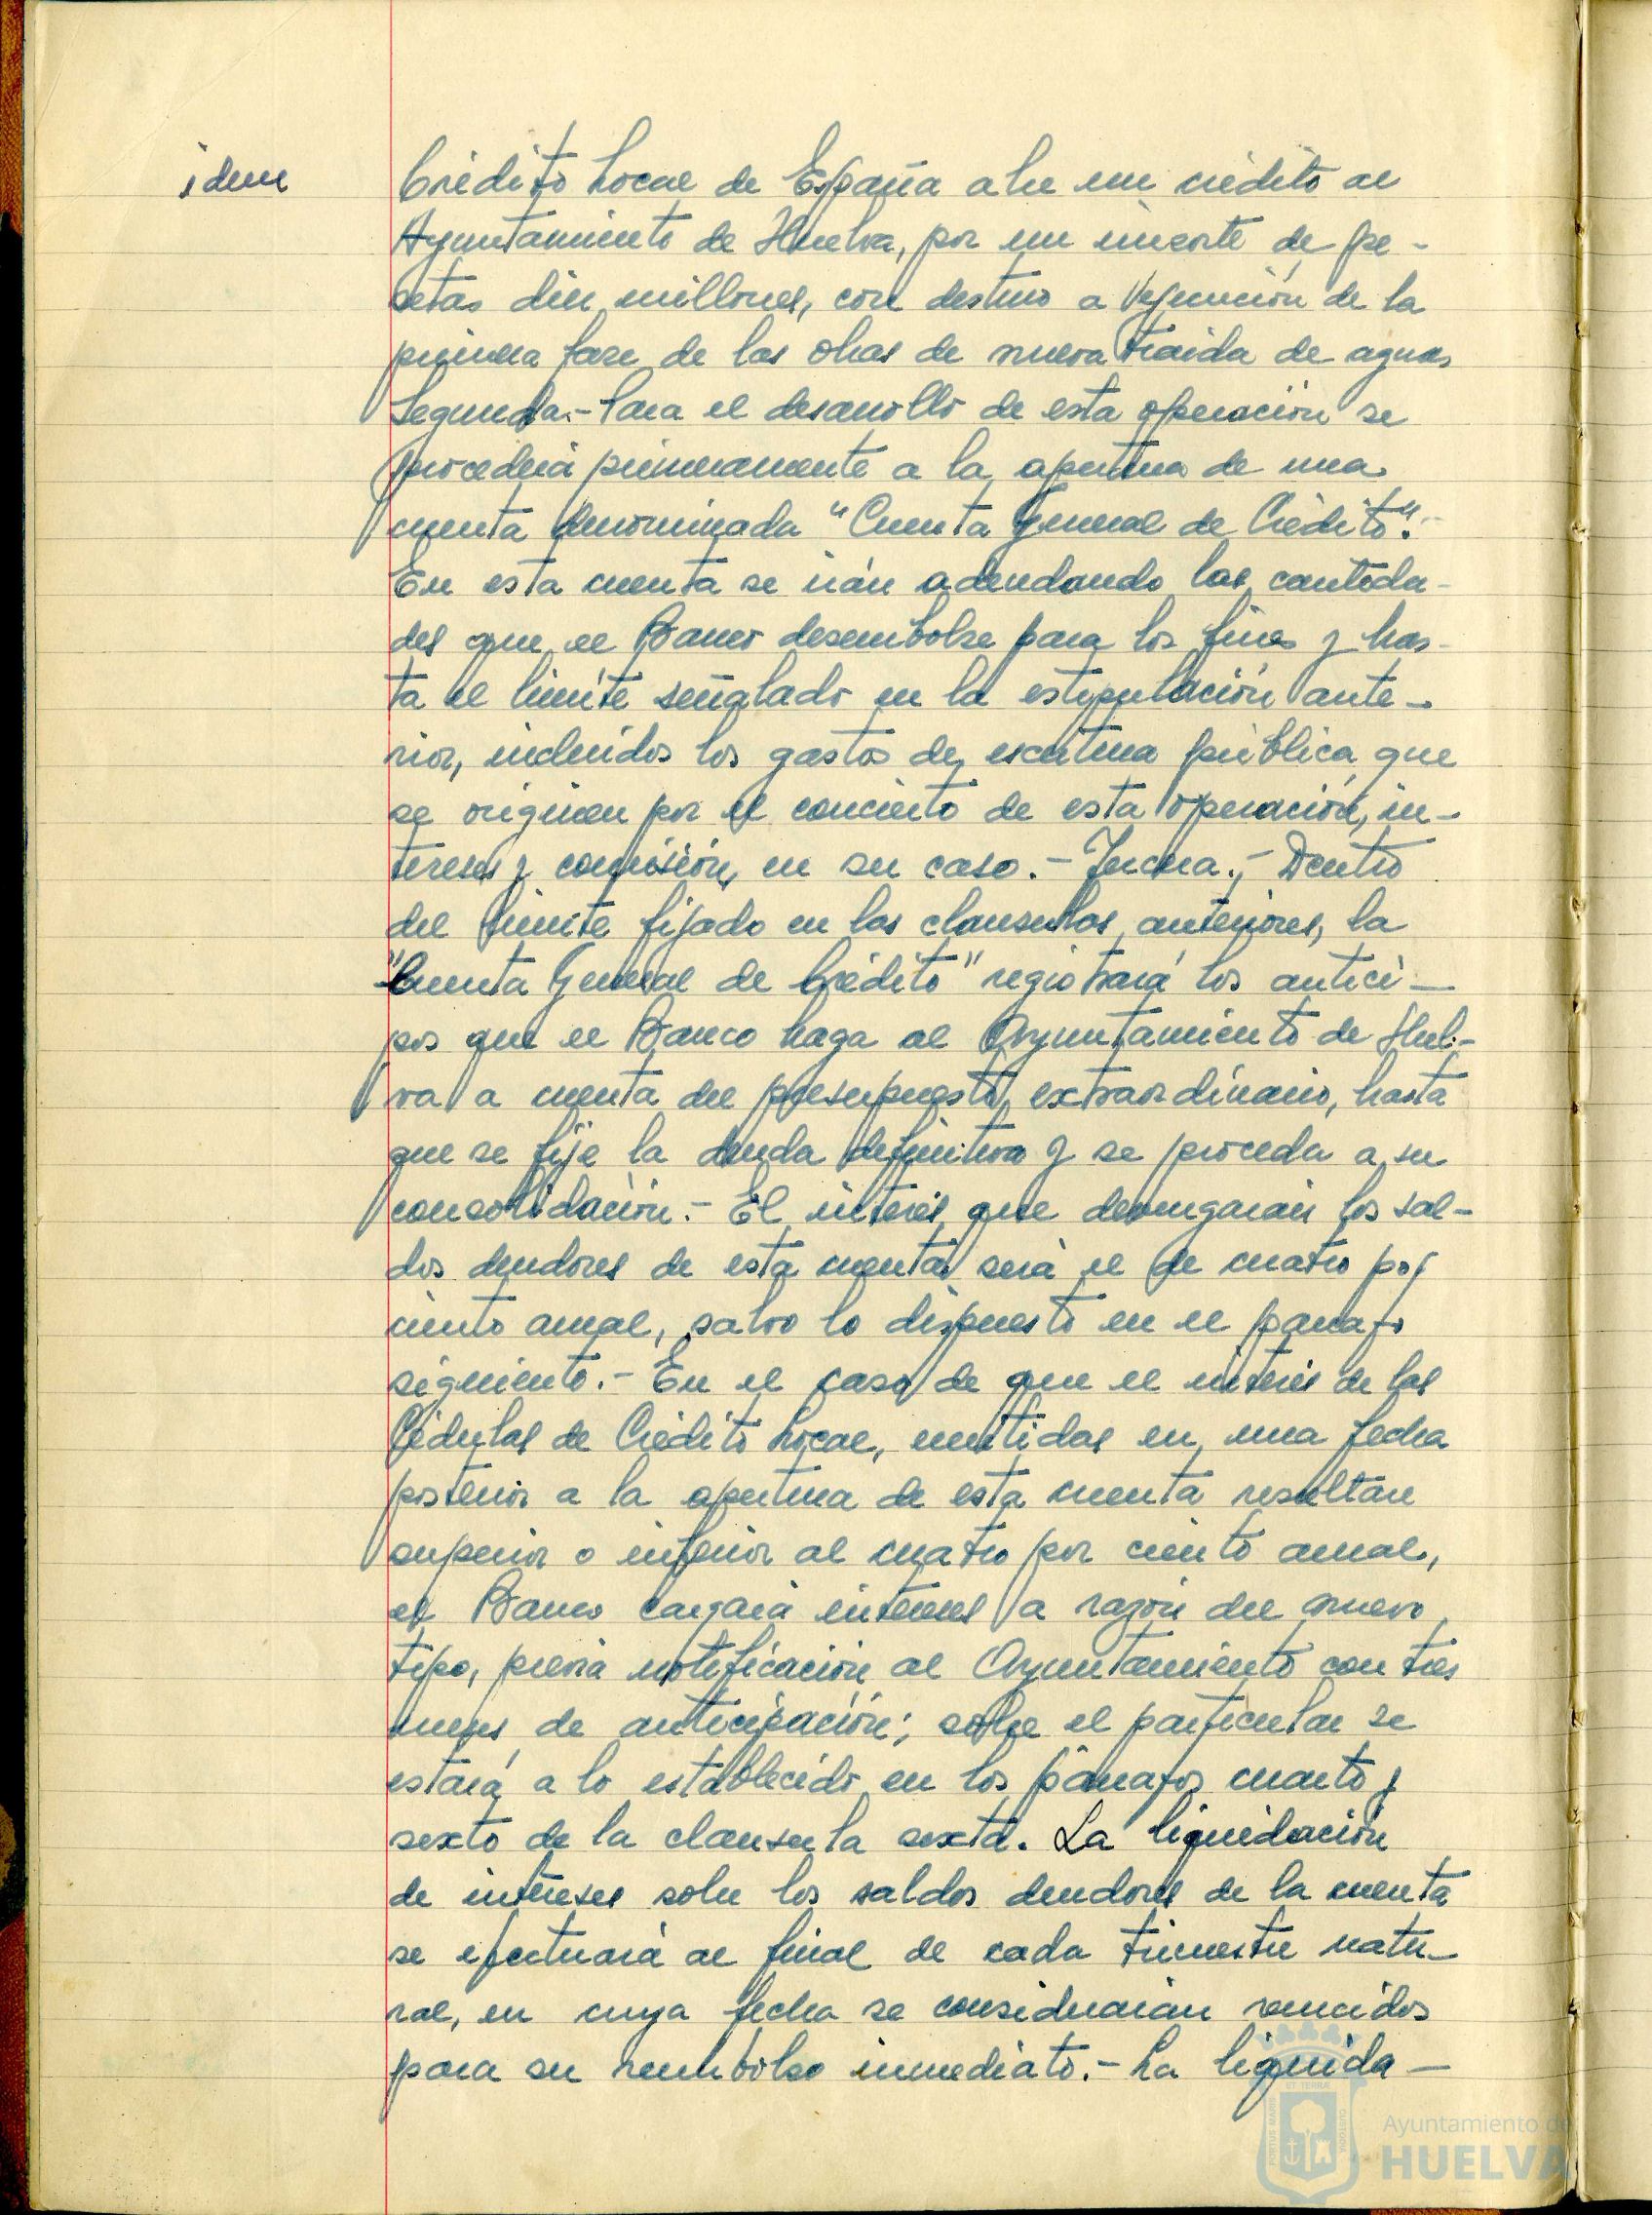 idem
Crédito Local de España abre un crédito al
Ayuntamiento de Huelva, por un importe de pe-
setas diez millones, con destino a ejecución de la
primera fase de las obras de nueva traida de aguas
Segunda.- Para el desarrollo de esta operación se
procederá primeramente a la apertura de una
cuenta denominada "Cuenta General de Crédito".-
En esta cuenta se irán adeudando las cantida-
des que el Banco desembolse para los fines y has-
ta el límite señalado en la estipulación ante-
rior, incluidos los gastos de escritura pública que
se originen por el concierto de esta operación, in-
tereses y comisión, en su caso.- Tercera.- Dentro
del límite fijado en las clausulas anteriores, la
"Cuenta General de Crédito" registrará los antici-
pos que el Banco haga al Ayuntamiento de Huel-
va a cuenta del presupuesto extraordinario, hasta
que se fije la deuda definitiva y se proceda a su
consolidación.- El interés que devengarán los sal-
dos deudores de esta cuenta será el de cuatro por
ciento anual, salvo lo dispuesto en el parrafo
siguiente.- En el caso de que el interés de las
Cédulas de Crédito Local, emitidas en una fecha
posterior a la apertura de esta cuenta resultare
superior o inferior al cuatro por ciento anual,
el Banco cargará intereses a razón del nuevo
tipo, previa notificación al Ayuntamiento con tres
meses de anticipación; sobre el particular se
estará a lo establecido en los párrafos cuarto y
sexto de la clausula sexta. La liquidación
de intereses sobre los saldos deudores de la cuenta
se efectuará al final de cada trimestre natu-
ral, en cuya fecha se considerarán vencidos
para su reembolso inmediato.- La liquida-
Ayuntamiento de
HUELVA